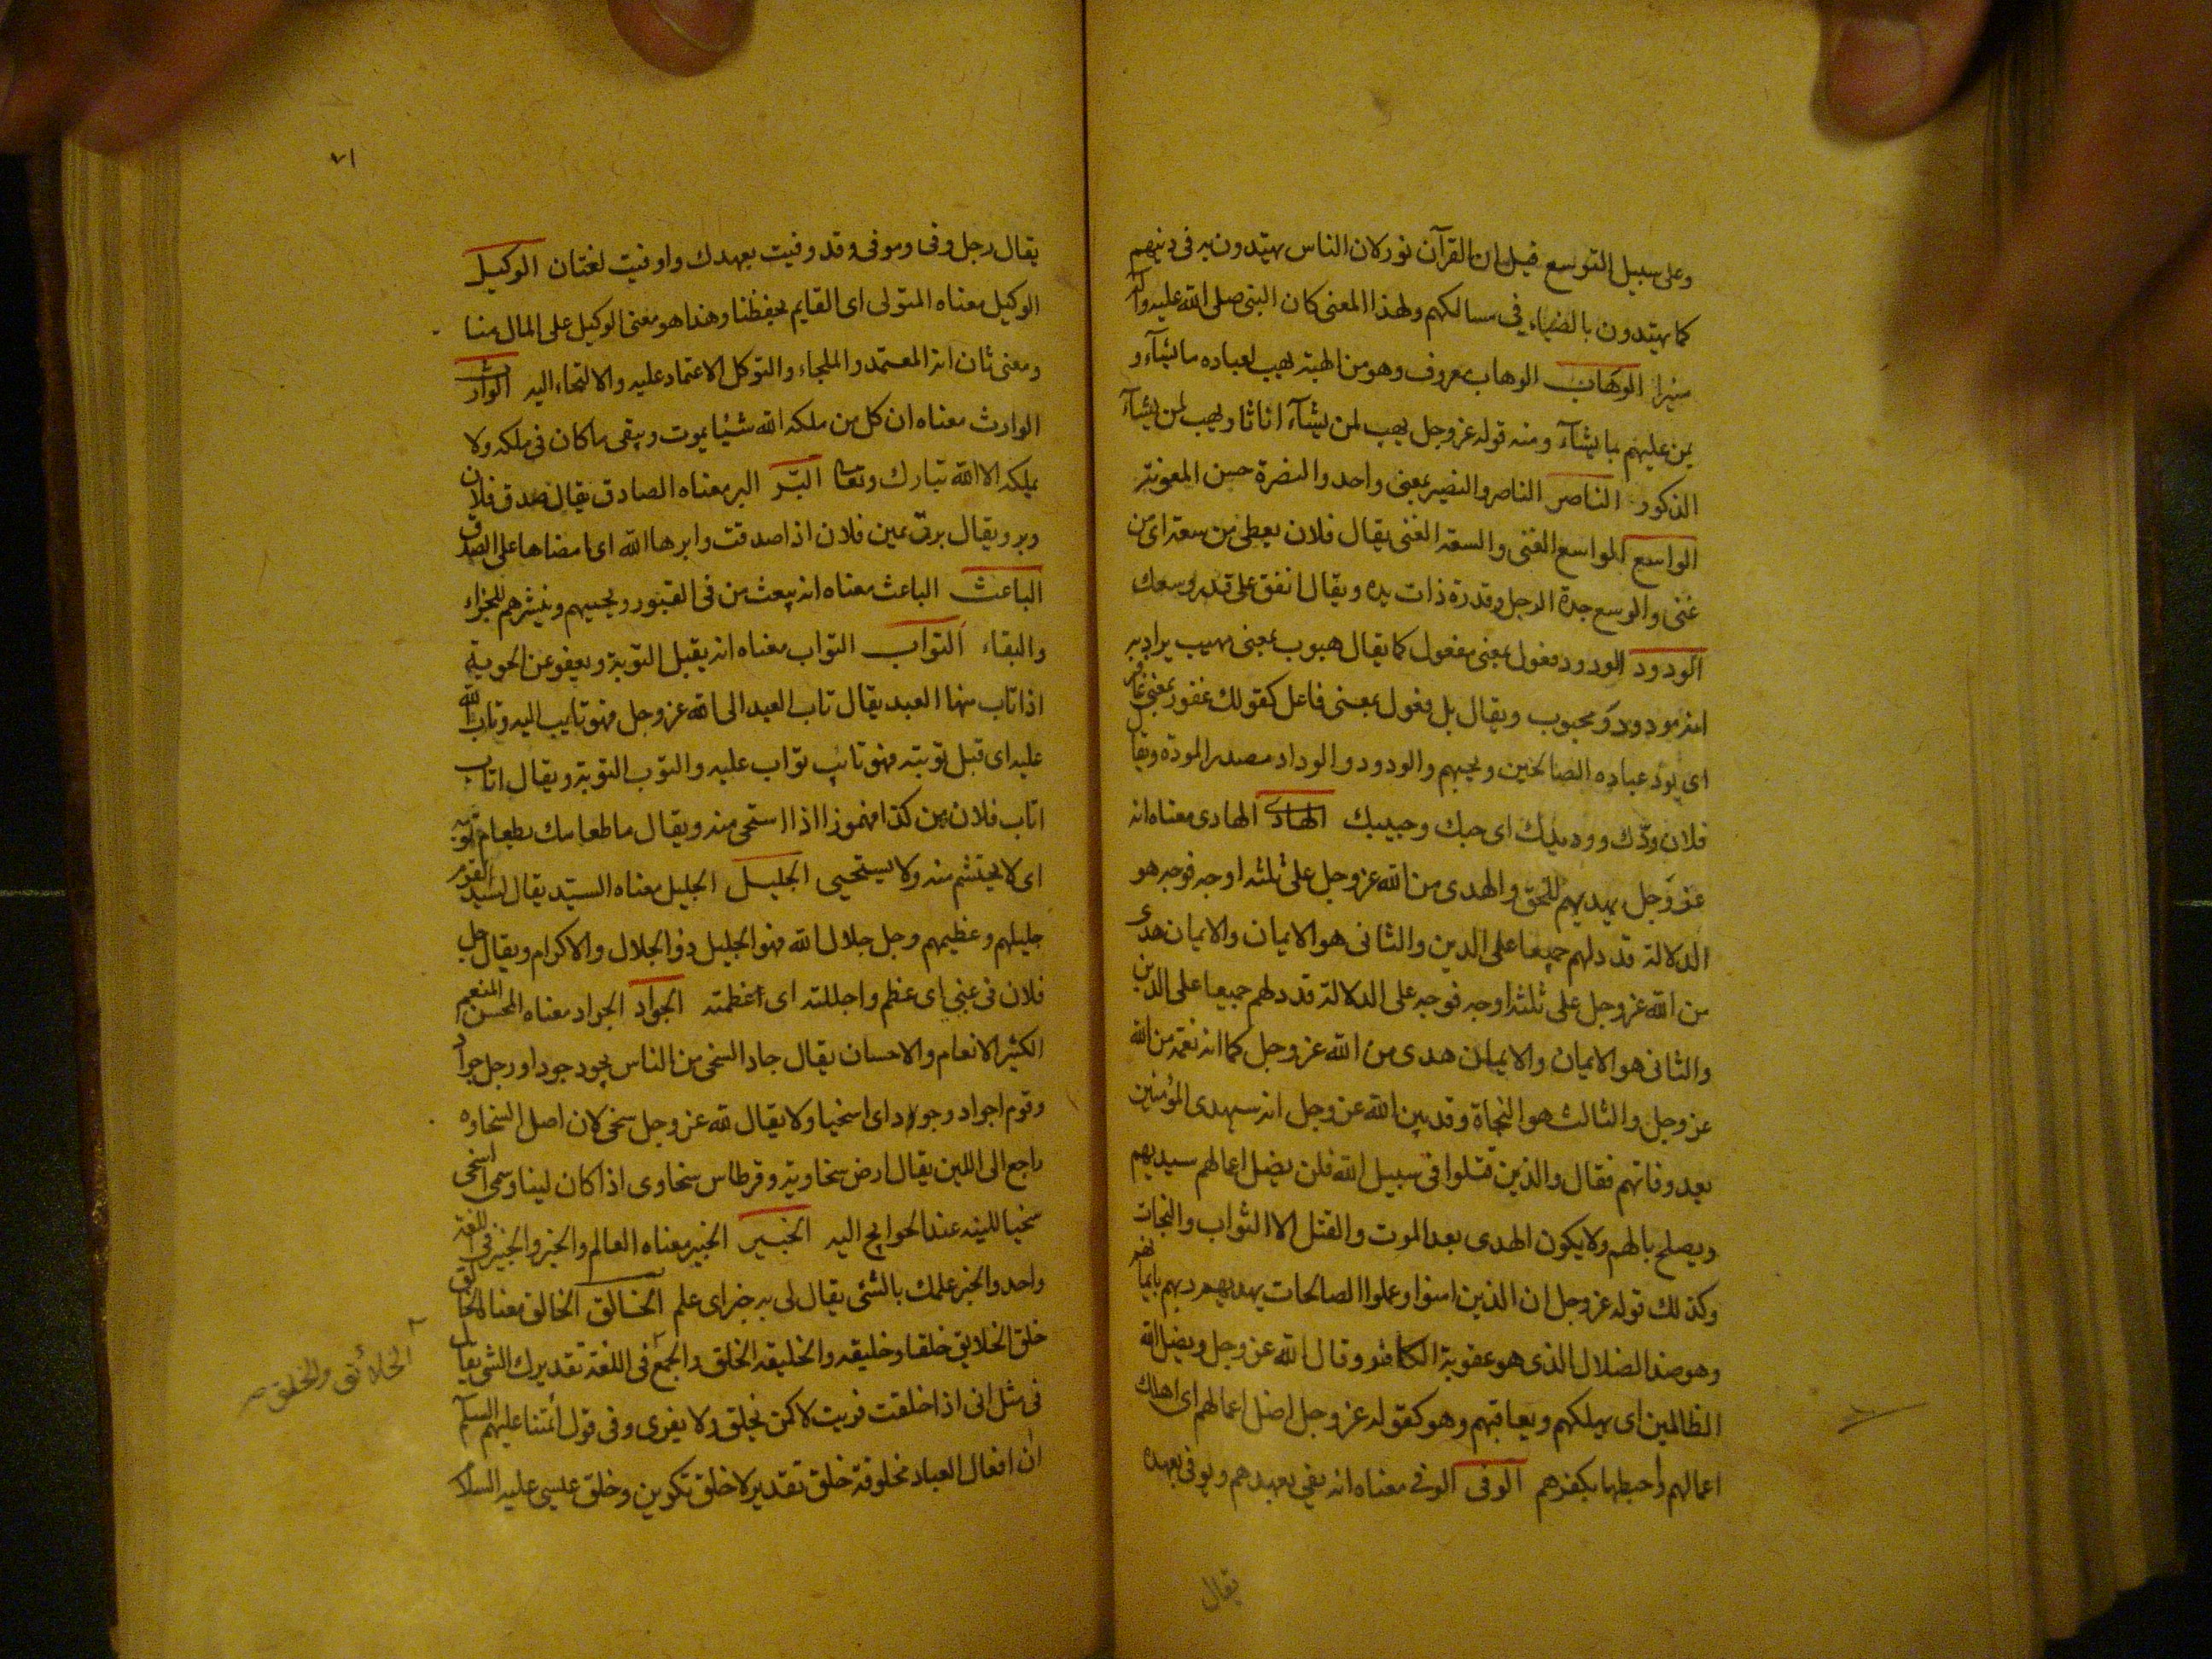 وعلى سبيل التوسع قيل ان القرآن نور لان الناس يهتدون به في دينهم
كما يهتدون بالضياء في مسالكهم ولهذا المعنى كان النبي صلى الله عليه وآله
منيرا الوهاب الوهاب معروف وهو من الهبة يهب لعباده ما يشآء و
يمن عليهم بما يشآء ومنه قوله عز وجل يهب لمن يشآء اناثا ويهب لمن يشآء
الذكور الناصر الناصر والنصير بمعنى واحد والنصرة حسن المعونة
الواسع الواسع الغنى والسعة الغنى يقال فلان يعطى من سعة اى من
غنى والوسع جدة الرجل وقدرة ذات يده ويقال انفق على قدر وسعك
الودود الودود فعول بمعنى مفعول كما يقال هيوب بمعنى مهيب يراد به
انه مودود ومحبوب ويقال بل فعول بمعنى فاعل كقولك غفور بمعنى غافر
اى يود عباده الصالحين ويحبهم والودود والوداد مصدر المودة ويقال
فلان ودّك ووديدك اى حبك وحبيبك الهادى الهادى معناه انه
عز وجل يهديهم للحق والهدى من الله عز وجل على ثلثه اوجه فوجه هو
الدلالة قد دلهم جميعا على الدين والثانى هو الايمان والايمان هدى
من الله عز وجل على ثلثه اوجه فوجه على الدلالة قد دلهم جميعا على الدين
والثانى هو الايمان والايمان هدى من الله عز وجل كما انه نعمة من الله
عز وجل والثالث هو النجاة وقد بين الله عز وجل انه سيهدى المؤمنين
بعد وفاتهم فقال والذين قتلوا فى سبيل الله فلن يضل اعمالهم سيهديهم
ويصلح بالهم ولا يكون الهدى بعد الموت والقتل الا الثواب والنجات
وكذلك قوله عز وجل ان الذين امنوا وعملوا الصالحات يهديهم ربهم بايمانهم
وهو ضد الضلال الذى هو عقوبة الكافر وقال الله عز وجل ويضل الله
الظالمين اى يهلكهم ويعاقبهم وهو كقوله عز وجل اضل اعمالهم اى اهلك
اعمالهم واحبطها بكفرهم الوفى الوفى معناه انه يفى بعهدهم ويوفى بعهده
يقال
٧١
يقال رجل وفى وموفى وقد وفيت بعهدك واوفيت لغتان الوكيل
الوكيل معناه المتولى اى القايم بحفظنا وهذا هو معنى الوكيل على المال منا
ومعنى ثان انه المعتمد والملجاء والتوكل الاعتماد عليه والالتجاء اليه الوارث
الوارث معناه ان كل من ملكه الله شيئا يموت ويبقى ما كان فى ملكه ولا
يملكه الا الله تبارك وتعا البّر البر معناه الصادق يقال صدق فلان
وبر ويقال برت يمين فلان اذا صدقت وابرها الله اى امضاها على الصدق
الباعث الباعث معناه انه يبعث من فى القبور ويحييهم وينشرهم للجزاء
والبقاء التواب التواب معناه انه يقبل التوبة ويعفو عن الحوبة
اذا تاب منها العبد يقال تاب العبد الى الله عز وجل فهو تايب اليه وتاب الله
عليه اى قبل توبته فهو تائب تواب عليه والتوب التوبة ويقال اتاب
اتاب فلان من كذا مهموزا اذا استحى منه ويقال ما طعامك بطعام توبة
اى لا يحتشم منه ولا يستحيى الجليل الجليل معناه السيّد يقال لسيد القوم
جليلهم وعظيمهم وجل جلال الله فهو الجليل ذو الجلال والاكرام ويقال جل
فلان فى عينى اى عظم واجللته اى اعظمته الجواد الجواد معناه المحسن المنعم
الكثير الانعام والاحسان يقال جاد السخى من الناس يجود جودا ورجل جواد
وقوم اجواد وجود اى اسخيا ولا يقال لله عز وجل سخى لان اصل السخاوه
راجع الى اللين يقال ارض سخاوية وقرطاس سخاوى اذا كان لينا وسمى السخى
سخيا للينه عند الحوايج اليه الخبير الخبير معناه العالم والخبر والخبير فى اللغة
واحد والخبر علمك بالشئ يقال لى به خبر اى علم الخالق الخالق معناه الخالق
خلق الخلايق خلقا وخليقه والخليقه الخلق والجمع فى اللغة تقديرك الشئ يقال
الخلائق والخلق
فى مثل انى اذا خلقت فريت لا كمن يخلق ولا يفرى وفى قول أئمتنا عليهم السلم
ان افعال العباد مخلوقة خلق تقدير لا خلق تكوين وخلق عيسى عليه السلا